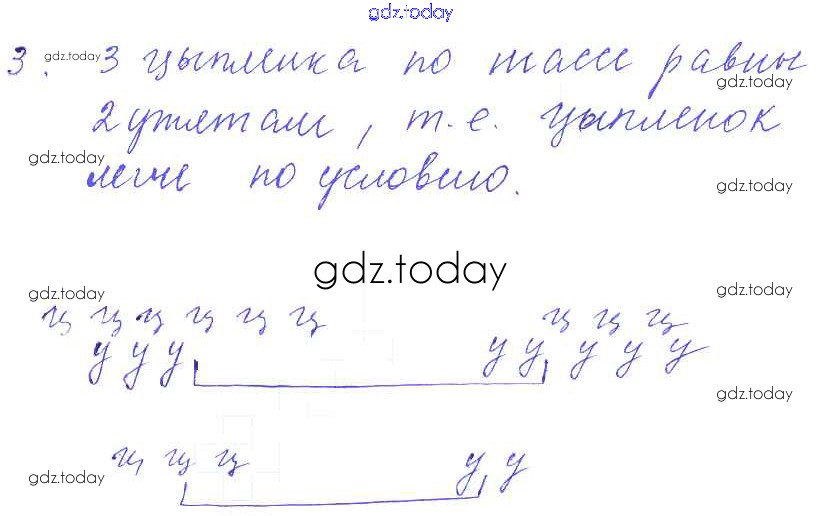 gdz.today
3. gdz.today 3 цыпленка по массе равны
gdz.today
2 утятам, т.е. цыпленок
gdz.today
легче по условию.
gdz.today
gdz.today
gdz.today
gdz.today
ц ц ц ц ц ц ц ц ц
у у у у у у у у
gdz.today
ц ц ц у у
gdz.today